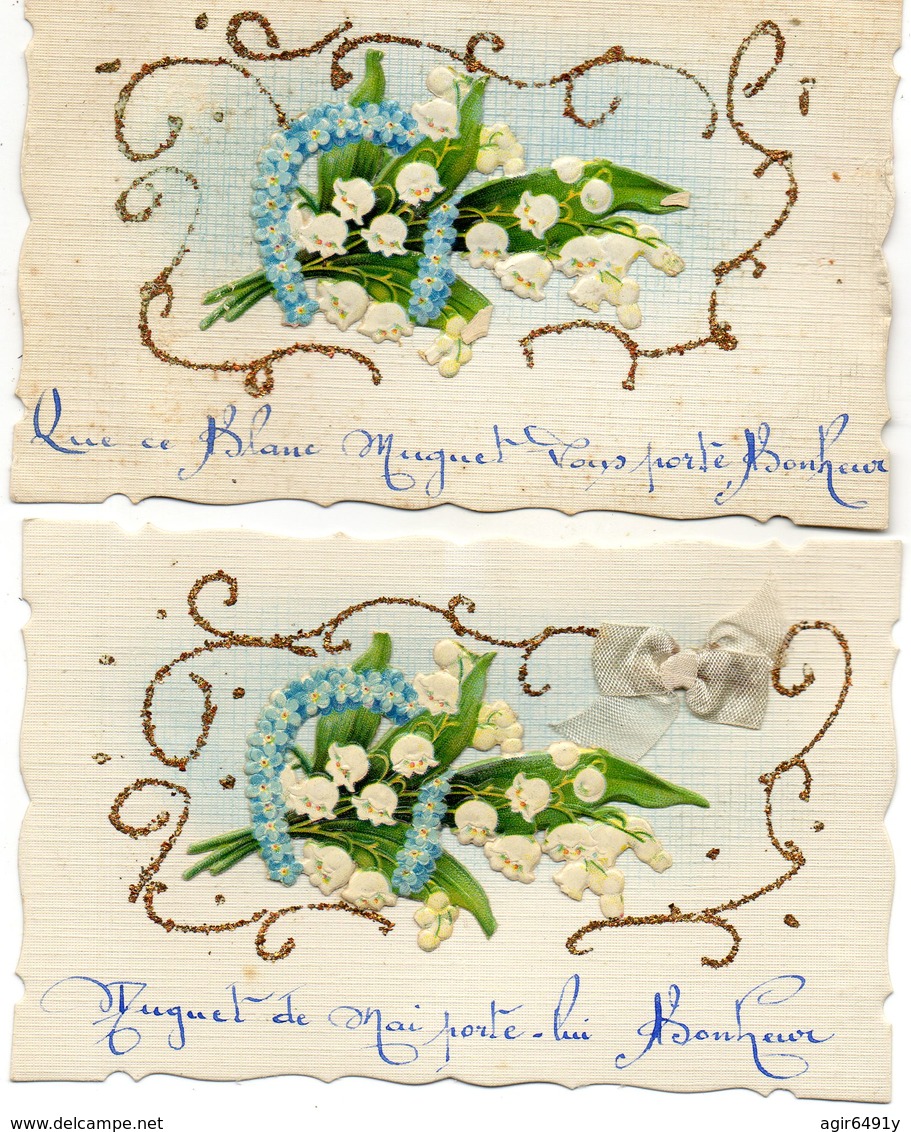 Que ce Blanc Muguet Vous porte Bonheur
Muguet de Mai porte-lui Bonheur
www.delcampe.net
agir6491y